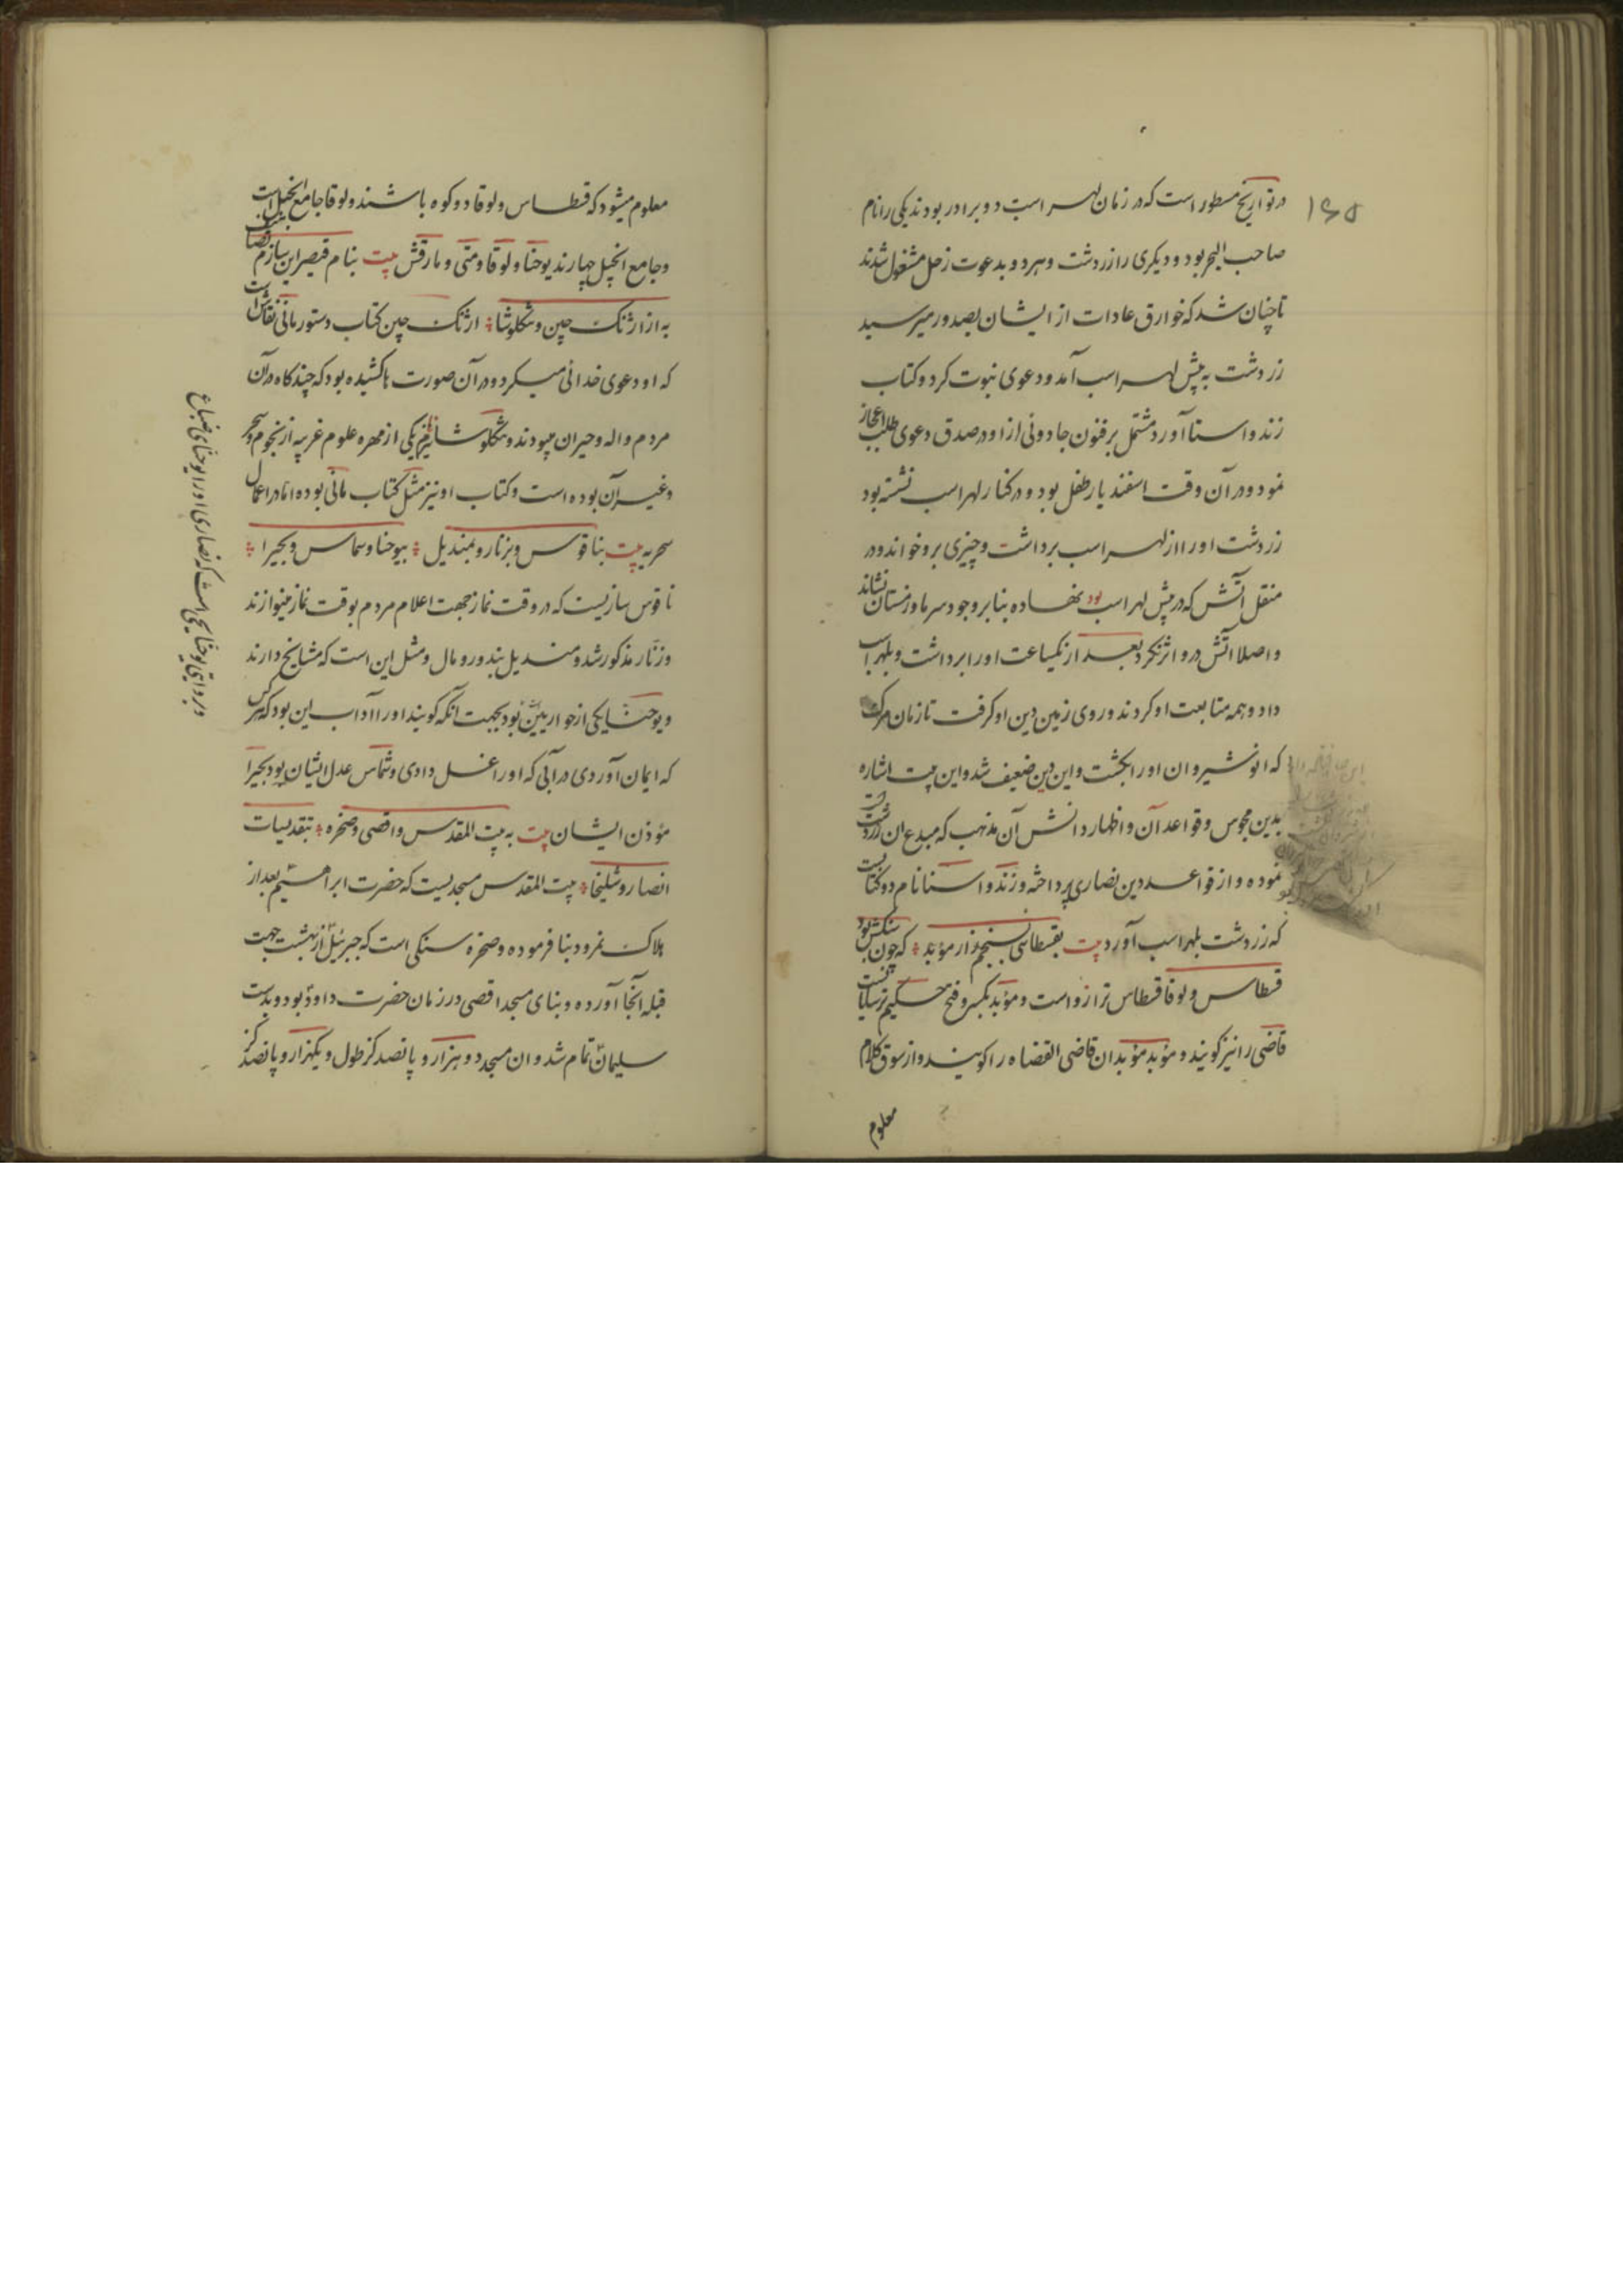 ۱۶۵
در تواریخ مسطور است که در زمان لهراسب دو برادر بودند یکی را نام
صاحب البحر بود و دیگری را زردشت و هر دو بدعوت زحل مشغول شدند
تا چنان شد که خوارق عادات از ایشان بصدور میرسید
زردشت به پیش لهراسب آمد و دعوی نبوت کرد و کتاب
زند و استا آورد مشتمل بر فنون جادوئی از او در صدق دعوی طلب اعجاز
نمود و در آن وقت اسفندیار طفل بود و در کنار لهراسب نشسته بود
زردشت او را از لهراسب برداشت و چیزی برو خواند و در
منقل آتش که در پیش لهراسب بود نهاده بنا بر وجود سرما و زمستان نشاند
و اصلا آتش درو اثر نکرد بعد از یکساعت او را برداشت و بلهراسب
داد و همه متابعت او کردند و روی زمین دین او گرفت تا زمان
که انوشیروان او را بکشت و این دین ضعیف شد و این بیت اشاره
بدین مجوس و قواعد آن و اظهار دانش آن مذهب که مبدع ان زردشت
نموده و از قواعد دین نصاری پرداخته و زند و استا نام دو کتابیست
که زردشت بلهراسب آورد بیت بقسطاسی بسنجم راز مؤبد که چون سنکش بود
قسطاس و لوقا قسطاس ترازو است و مؤبد بکسر و فتح حکیم ترسایانست
قاضی را نیز کویند و مؤبد مؤبدان قاضی القضاه را کویند و از سوق کلام
معلوم
معلوم میشود که قسطاس و لوقا دو کوه باشند و لوقا جامع انجیل است
و جامع انجیل چهارند یوحنا و لوقا و متی و مارقش بیت بنام قیصر این سازم
به از ارژنک چین و تنکلوشا ارژنک چین کتاب دستور مانی نقاش است
که او دعوی خدائی میکرد و در آن صورت ها کشیده بود که چند کاه در آن
مردم واله و حیران میبودند و تنکلوشا نیز یکی از مهره علوم غریبه از نجوم و سحر
و غیر آن بوده است و کتاب او نیز مثل کتاب مانی بوده اما در اعمال
سحریه بیت بناقوس و بزنار و بمندیل بیوحنا و شماس و بحیرا
ناقوس سازیست که در وقت نماز جهت اعلام مردم بوقت نماز مینوازند
و زنّار مذکور شد و مندیل بند و رومال و مثل این است که مشایخ دارند
و یوحنا یکی از حواریین بود بجهت آنکه کویند او را آداب این بود که هر کس
که ایمان آوردی در آبی که او را غسل دادی و شماس عدل ایشان بود بحیرا
مؤذن ایشان بیت به بیت المقدس و اقصی و صخره بتقدیسات
انصار و شلیخا بیت المقدس مسجدیست که حضرت ابراهیم بعد از
هلاک نمرود بنا فرموده و صخره سنکی است که جبرئیل از بهشت جهت
قبله آنجا آورده و بنای مسجد اقصی در زمان حضرت داود بود و بدست
سلیمان تمام شد و ان مسجد دو هزار و پانصد کز طول و یکهزار و پانصد کز
و بروایتی یوحنا یحیی است که نصاری او را یوحنای صباغ